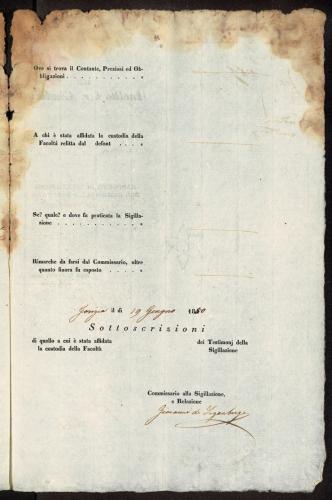 Ove si trova il Contante, Preziosi ed Ob-
bligazioni . . . . . . . . . . . .
A chi è stata affidata la custodia della
Facoltà relitta dal defont . . . .
Se? quale? e dove fu praticata la Sigilla-
zione . . . . . . . . . . . . . .
Rimarche da farsi dal Commissario, oltre
quanto finora fu esposto . . . . .
il dì 19 Giugno 18
Sottoscrizioni
di quello a cui è stata affidata
la custodia della Facoltà
dei Testimonj della
Sigillazione
Commissario alla Sigillazione,
e Relazione
Giovanni de